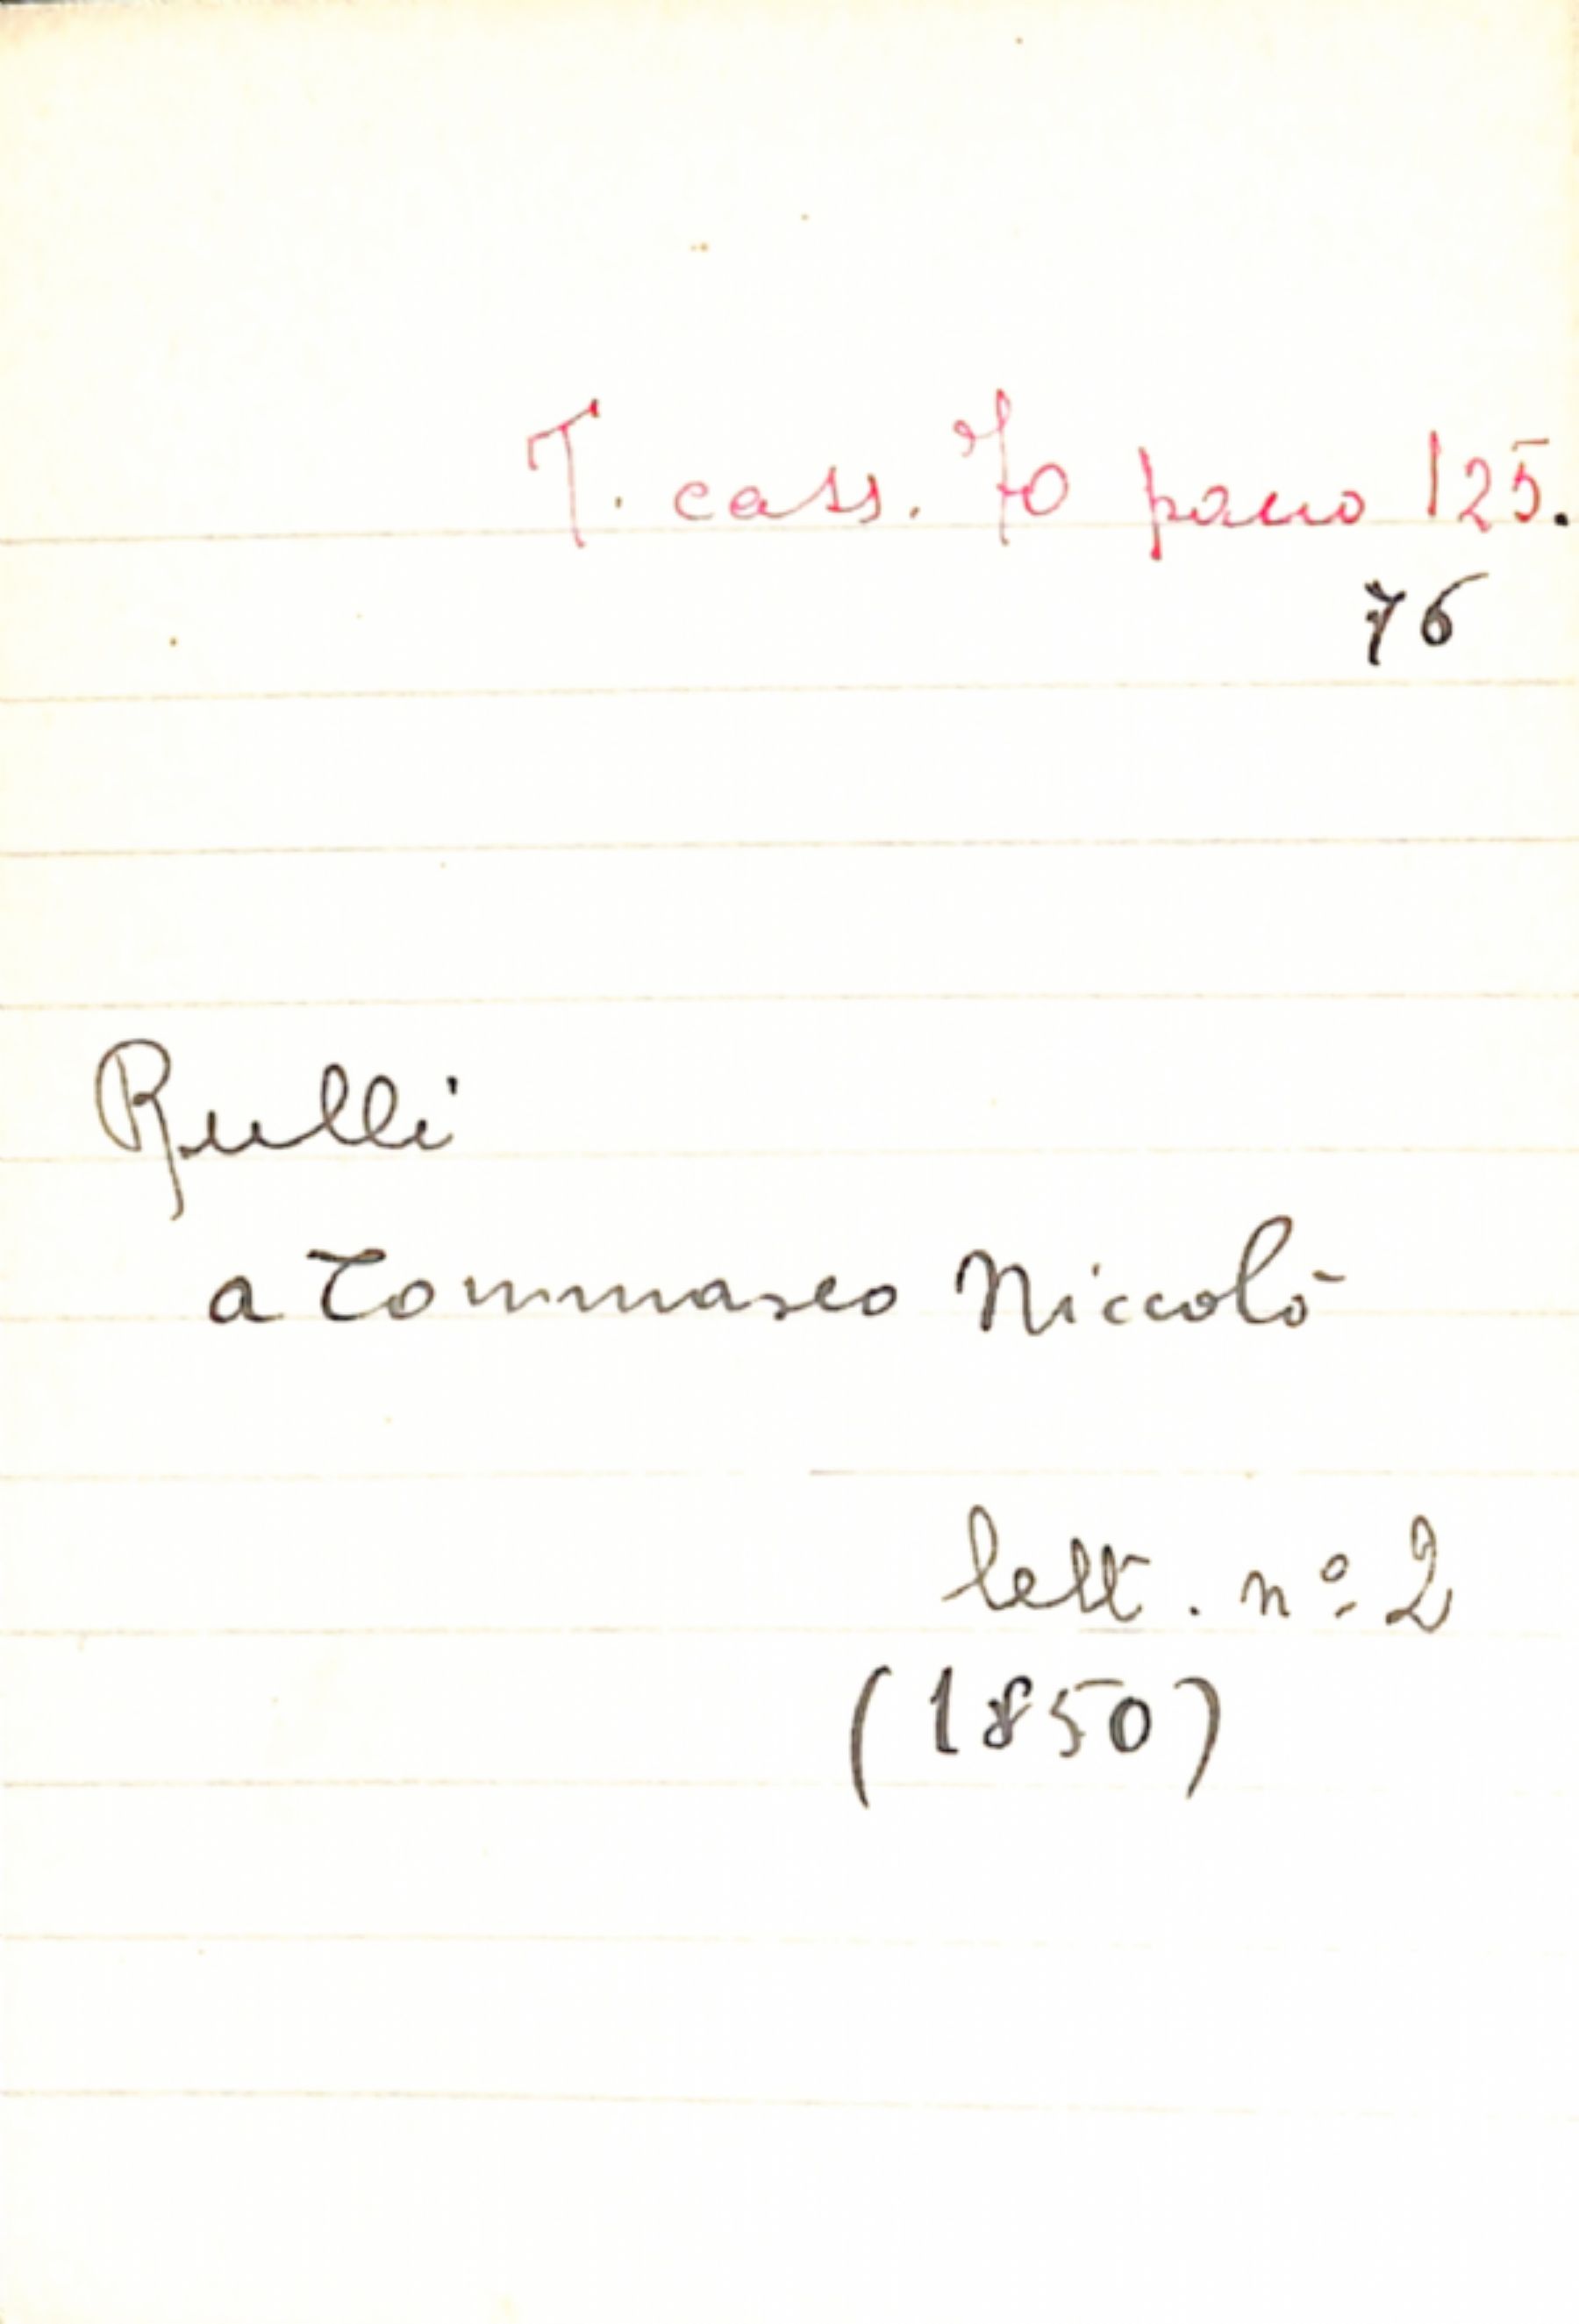 T. cass. 70 pacco 125.
76
Rulli
a Tommaseo Niccolò
lett. nº 2
(1850)